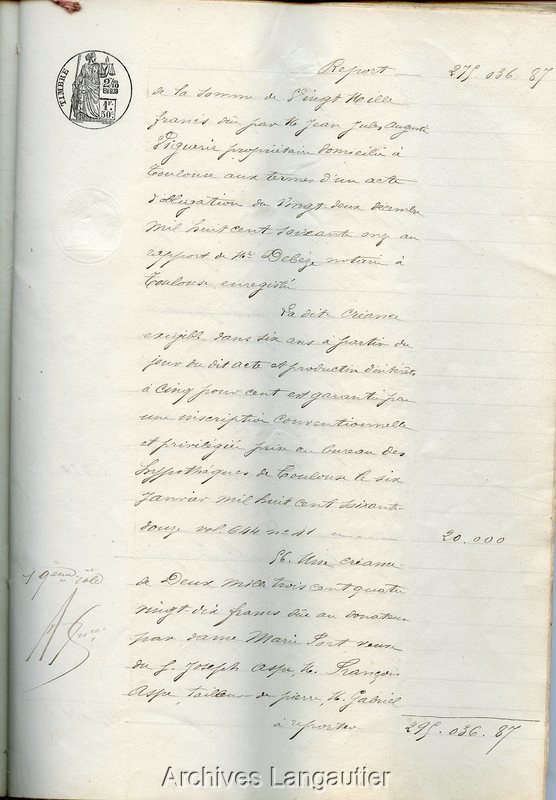 Report 275.036.87
TIMBRE
2/10 EN SUS
1F. 50C.
de la somme de Vingt Mille
francs due par M. Jean Jules Auguste
Viguerie propriétaire domicilié à
Toulouse aux termes d'un acte
d'obligation du Vingt deux décembre
mil huit cent soixante onze au
rapport de Me Debèze notaire à
Toulouse enregistré
La dite créance
exigible dans six ans à partir du
jour du dit acte et productive d'intérêts
à cinq pour cent est garantie par
une inscription conventionnelle
et privilégiée prise au bureau des
hypothèques de Toulouse le six
Janvier mil huit cent soixante
douze vol. 644 n° 41 20.000
56. Une créance
de Deux mille trois cent quatre
19ème rôle
vingt dix francs due au donateur
par dame Marie Port veuve
du S. Joseph Aspe, M. François
Aspe, tailleur de pierre, M. Gabriel
à reporter 295.036.87
Archives Langautier